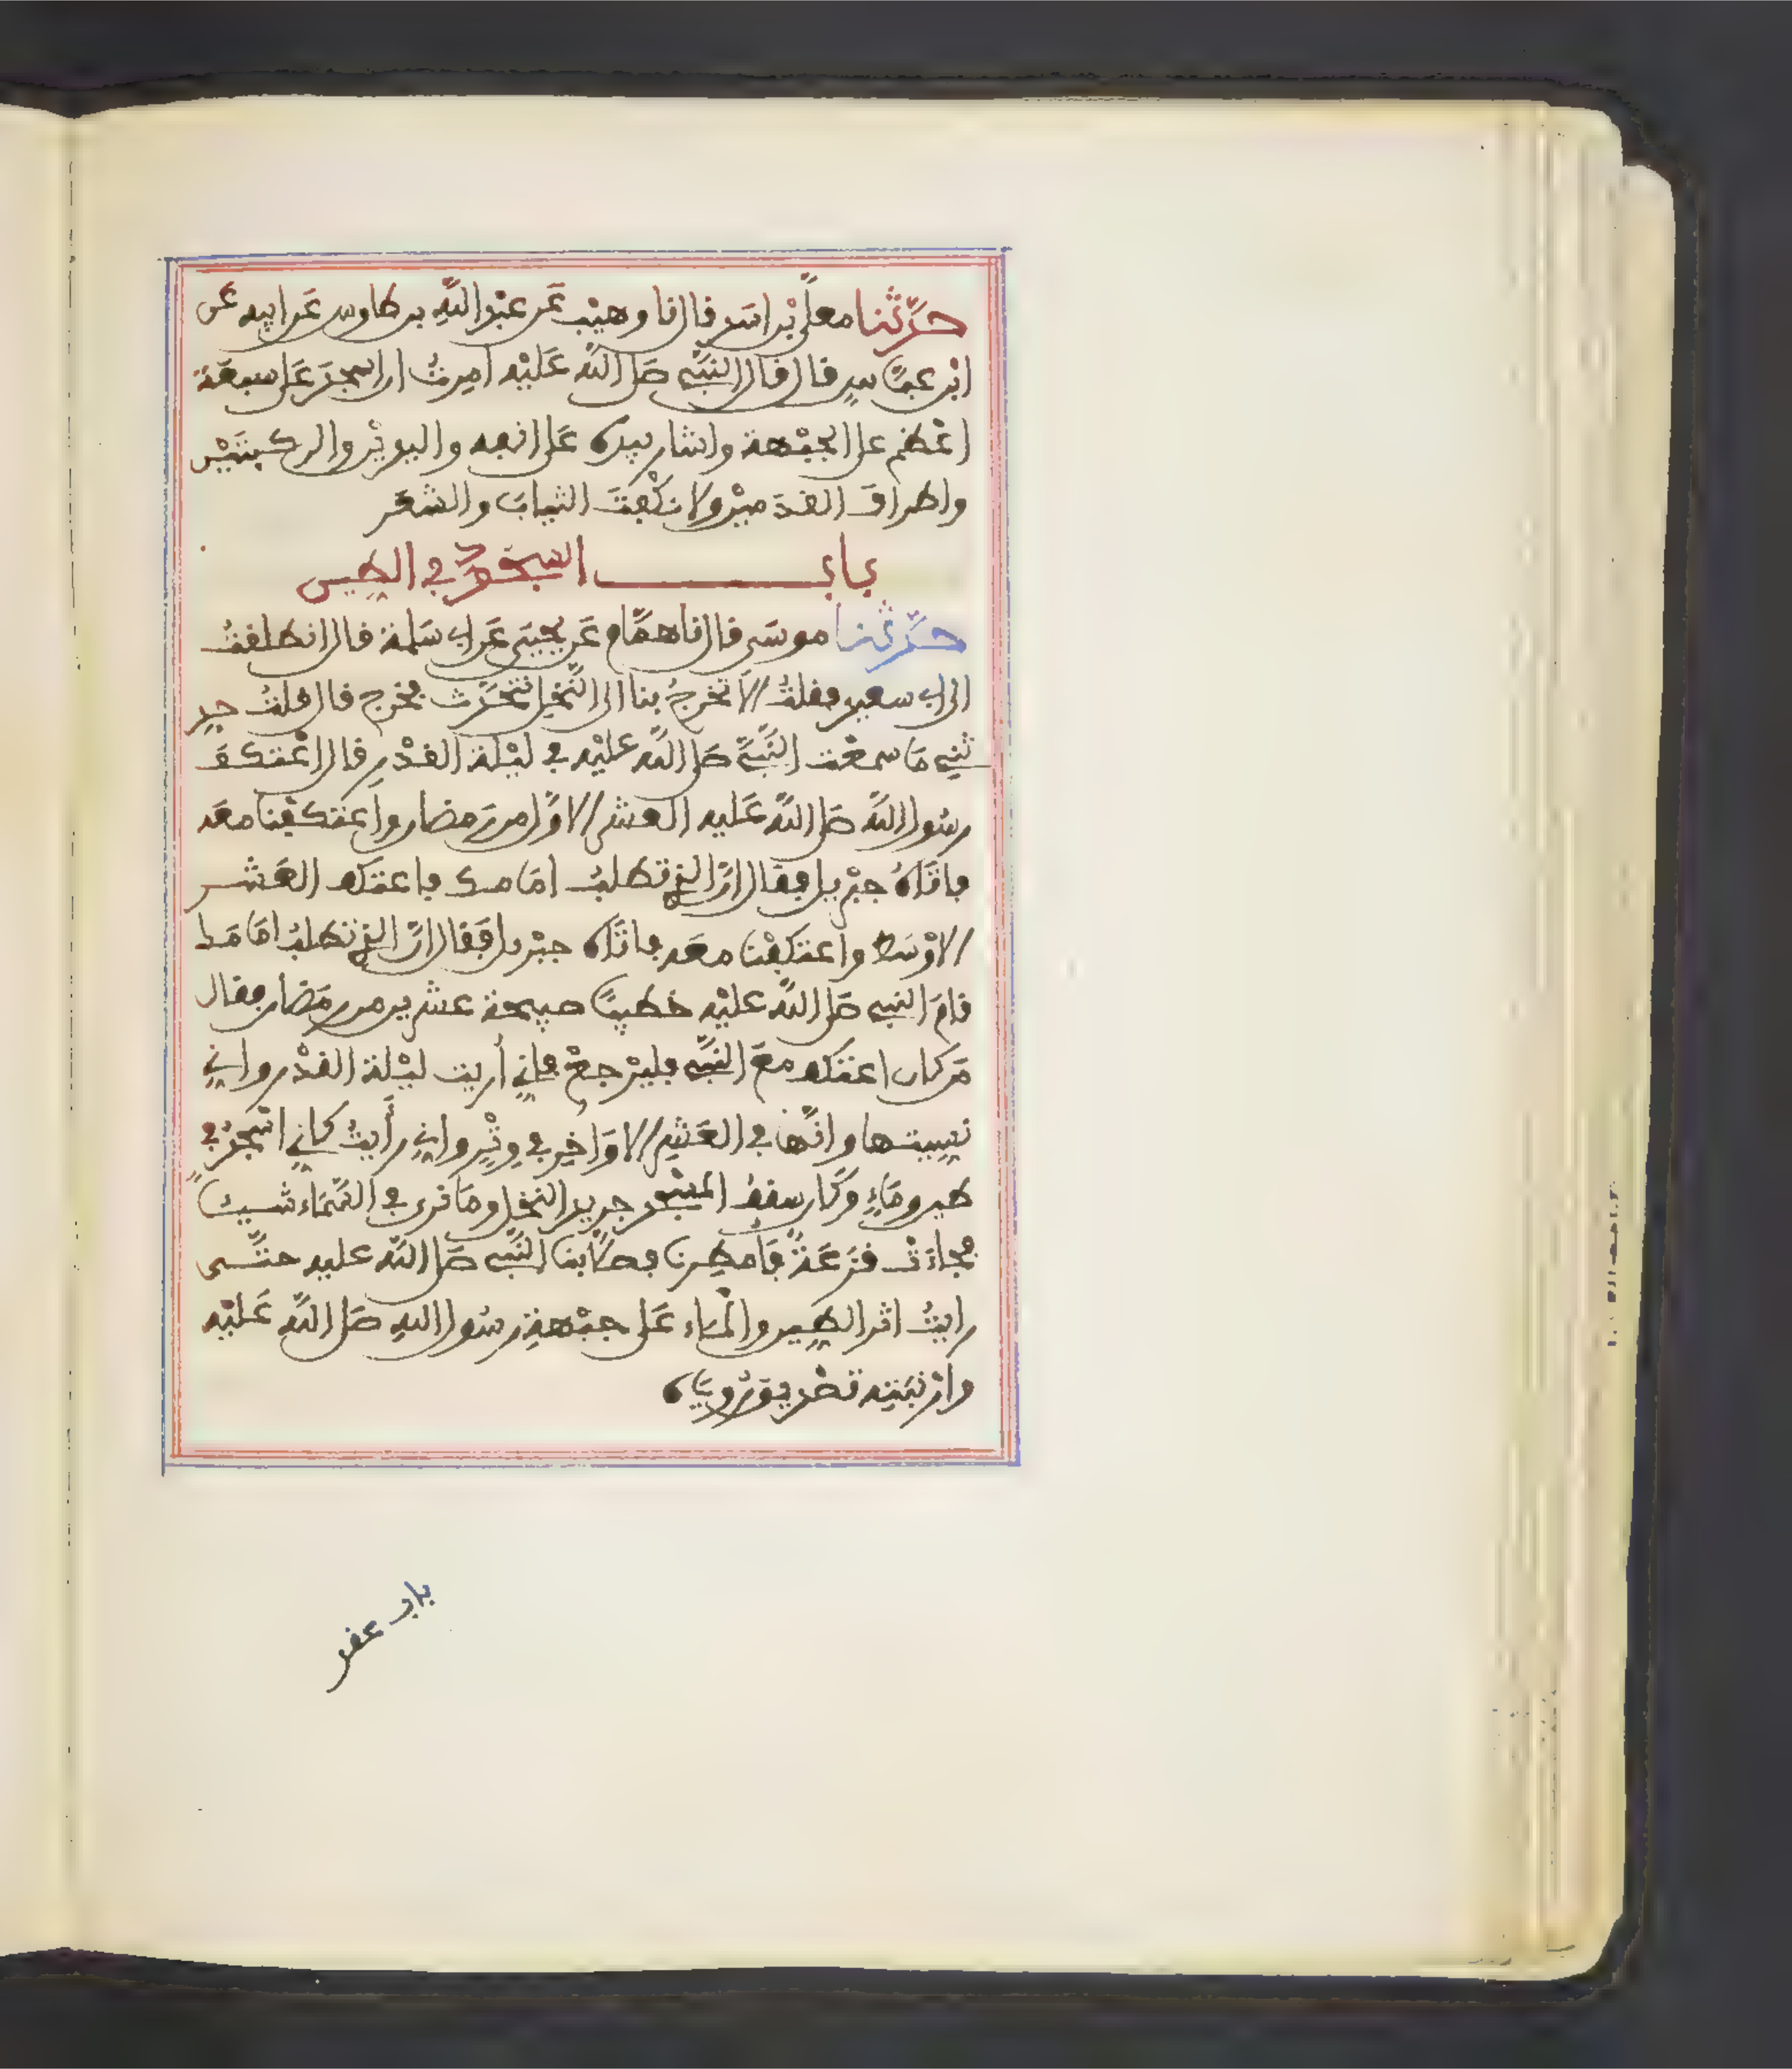 حَدَّثَنا معلّى بْن اسَدٍ قال نا وهيْب عَن عبْد اللّهِ بن طاوس عَن ابيه عَن
ابْن عبّاسٍ قال قال النّبيّ صَلى اللّه عَليْه امرتُ ان اسجدَ عَلى سبعَة
اعْظم على الجبْهة واشار بيده عَلى انفه واليديْن والركبتَيْن
واطراف القدَميْن ولا نكْفِتَ الثيابَ والشعَر
باب السجود في الطين
حَدَّثنا موسَى قال نا همَّام عَن يحيَى عَن ابي سَلمة قال انطلقتُ
الى ابي سعيد فقلتُ الا تخرجُ بنا الى النّخل نتحَدّث فخرج قال قلتُ حد
ثني مَا سمعْت النَّبيَّ صَلى اللّه عليْه في ليْلة القدْرِ قال اعْتكفَ
رسُول اللّه صَلى اللّه عَليه العشر الاوَّل من رَمضان واعتكفْنا معَه
فاتَاهُ جبْريل فقال انّ الذي تطلبُ امَامك فاعتكف العَشر
الاوْسَط واعتكفْنا معَه فاتَاه جبْريل فَقال انّ الذي تطلبُ امَامَك
قامَ النبي صَلى اللّه عليْه خطيبًا صبيحة عشرين من رمَضان فقال
مَن كان اعتكف معَ النّبيّ فليرْجعْ فاني أُريت ليْلة القدْر واني
نسيتها وانّها في العَشرِ الاوَاخِر في وِتْرٍ واني رأَيتُ كاني اسْجدُ في
طين ومَاءٍ وكَان سقفُ المسْجد جريد النخل ومَا نرى في السّمَاء شيئًا
فجاءَتْ قزَعَةٌ فَامطِرنا فصلّا بنا النّبي صَلى اللّه عليه حتّى
رايتُ اثر الطِين والْماء عَلى جبْهةِ رسُول اللهِ صَلى اللّهُ عَليْه
وارْنبَتِه تصْديق رُويَاه
باب عقد